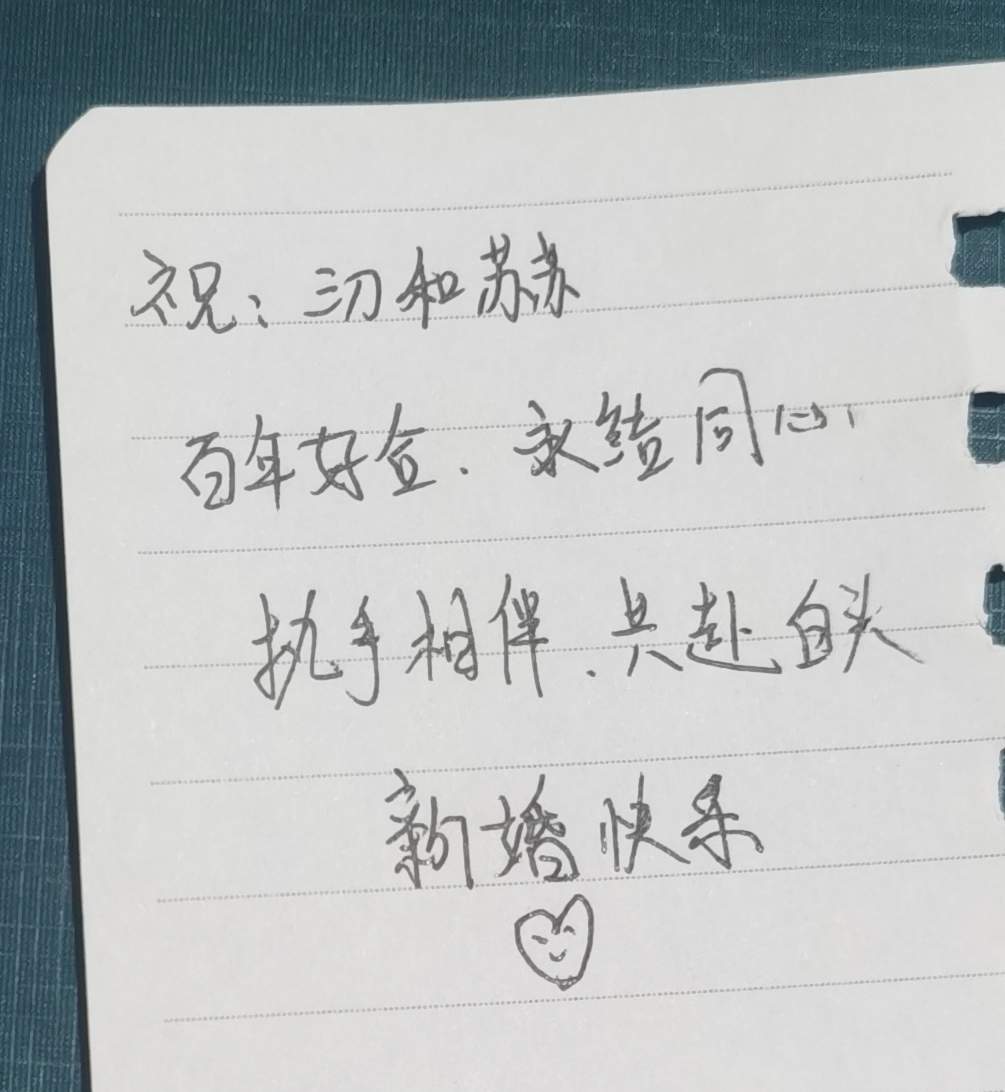 祝：三刀和苏苏
百年好合．永结同心，
执手相伴．共赴白头
新婚快乐